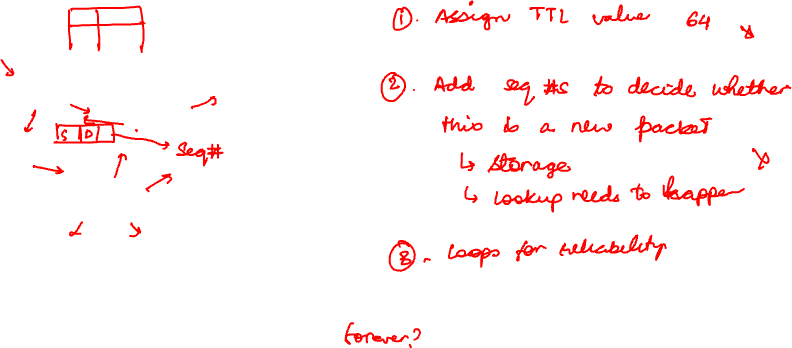 ①. Assign TTL value 64
②. Add seq #s to decide whether
this is a new packet
↳ storage
↳ Lookup needs to happen
③. Loops for reliability
S D
Seq#
forever?